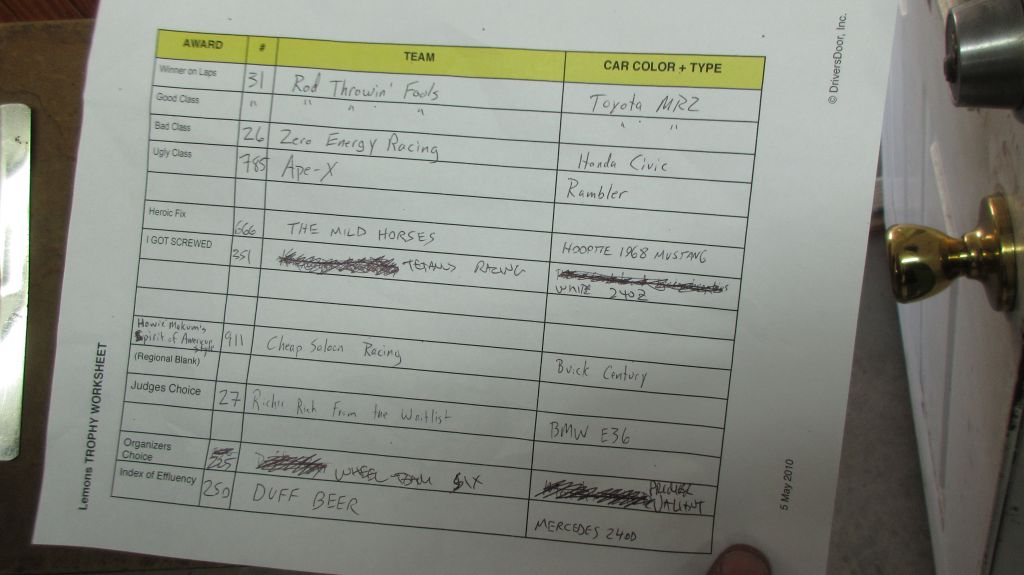 AWARD # TEAM CAR COLOR + TYPE
Winner on Laps 31 Rod Throwin' Fools Toyota MR2
Good Class " " " " " "
Bad Class 26 Zero Energy Racing Honda Civic
Ugly Class 785 Ape-X Rambler
Heroic Fix 666 THE MILD HORSES HOOPTIE 1968 MUSTANG
I GOT SCREWED 351 TETANUS RACING
WHITE 240Z
Howie Makum's
Spirit of American 911 Cheap Saloon Racing Buick Century
(Regional Blank)
Judges Choice 27 Richie Rich From the Waitlist BMW E36
Organizers
Choice WHEEL SIX PRIMER
VALIANT
Index of Effluency 250 DUFF BEER MERCEDES 240D
Lemons TROPHY WORKSHEET
5 May 2010
© DriversDoor, Inc.